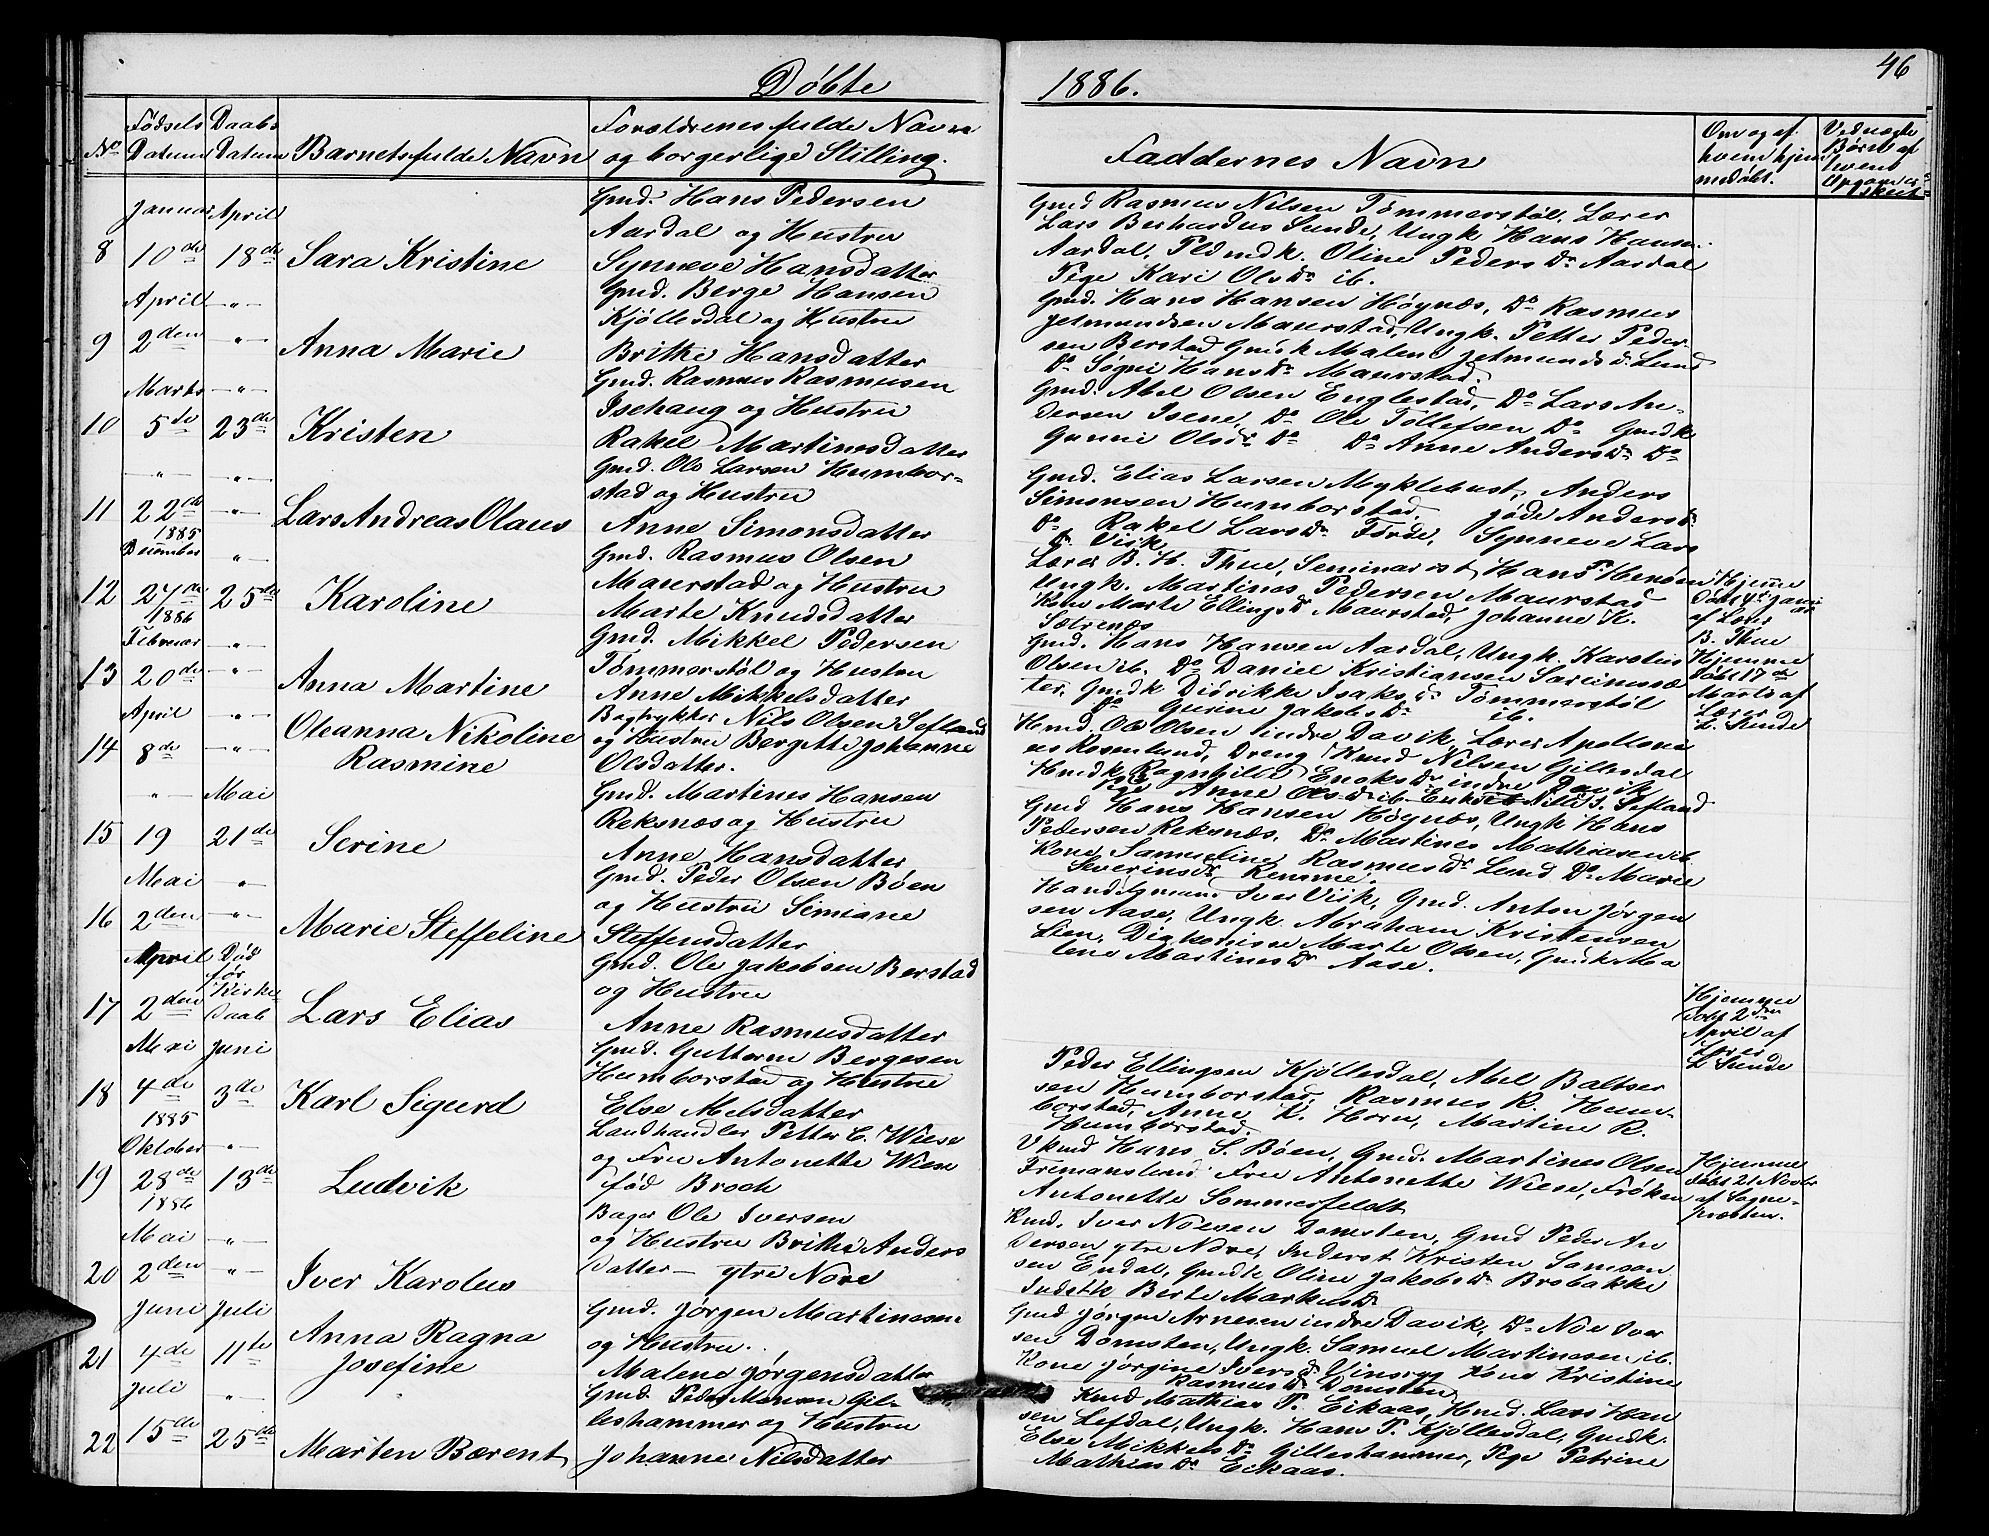 46
Døbte 1886.
No
Fødsels Datum
Daabs Datum
Barnets fulde Navn
Forældrenes fulde Navn
og borgerlige Stilling.
Faddernes Navn
Om og af
hvem hjem
medøbt.
Børn af
hvem
8 Januar 10de April 18de Sara Kristine
Gmd. Hans Pedersen
Aardal og Hustru
Synneve Hansdatter
Gmd Rasmus Nilsen Tømmerstøl, Lærer
Lars Berhardus Sunde, Ungk Hans Hansn.
Aardal, Oline Peders Do Aardal
Pige Kari Ols Do ib.
9 April 2den -"- Anna Marie
Gmd. Berge Hansen
Kjøllesdal og Hustru
Brithe Hansdatter
Gmd. Hans Hansen Høynæs, Do Rasmus
Jetmundsen Maurstad, Ungk. Petter Peder
sen Berstad Gmdk Malene Jetmunds D. Lund
Do Søgni Hans Do Maurstad.
10 Marts 5te 23de Kristen
Gmd. Rasmus Rasmusen
Isehaug og Hustru
Rakel Martinesdatter
Gmd. Abel Olsen Englestad, Do Lars An-
dersen Isene, Do Ole Tollefsen Do Gmdk
Gunni Olsdr Do Do Anne Anders Do Do
11 -"- 22de -"- Lars Andreas Olaus
Gmd. Ole Larsen Humbor-
stad og Hustru
Anne Simonsdatter
Gmd. Elias Larsen Myklebust, Anders
Simonsen Humborstad. Jøde Anders D.
Do Rakel Lars Do Førde, Synneve Lars
D. Vik
12 1885 Desember 24de 25de Karoline
Gmd. Rasmus Olsen
Maurstad og Hustru
Marte Knudsdatter
Lærer B. H. Thue, Seminarist Hans Hansen
Ungk. Martines Pedersen Maurstad
Kone Marte Ellings D. Maurstad, Johanne K.
Sætrenæs
Hjeme
døbt 4de Januar
af Lærer
B. Thue
13 1886 Februar 20de -"- Anna Martine
Gmd. Mikkel Pedersen
Tømmerstøl og Hustru
Anne Mikkelsdatter
Gmd. Hans Hansen Aardal, Ungk. Karolus
Olsen ib. Do Daniel Kristiansen
ter, Gmdk Didrikke Isaks D. Tømmerstøl
Do Gurine Jakobs Do ib.
Hjemme
døbt 17de
Marts af
Lærer
L. Sunde
14 April 8de -"- Oleanna Nikoline
Rasmine
Bogtrykker Nils Olsen Sefland
og Hustru Bergitte Johanne
Olsdatter.
Hmd. Ole Olsen indre Davik, Lærer Apolloni
es Rosenlund, Dreng Knud Nilsen Gillesdal
Hmdk Ragnhilde Enoks Do indre Davik
Pige Anne Ols D. ib. Sefland
15 -"- 19 Mai 21de Serine
Gmd. Martines Hansen
Reksnæs og Hustru
Anne Hansdatter
Gmd Hans Hansen Høynæs, Ungk Hans
Pedersen Reksnæs, Do Martines Mathiasen ib.
Kone Samueline Rasmus Dr Lund Do Marie
Severins Dr Remme.
16 Mai 2den -"- Marie Steffeline
Gmd. Peder Olsen Bøen
og Hustru Simiane
Steffensdatter
Handelsmand Iver Vik, Gmd. Anton Jørgen
sen Aase, Ungk. Abraham Kristensen
Lien, Diakonisse Marte Olsen, Gmdk Ma
lene Martines Dr Aase.
17 April 2den Død
før
Kirke
Daab Lars Elias
Gmd. Ole Jakobsen Berstad
og Hustru
Anne Rasmusdatter
Hjemme
døbt 2den
April af
Lærer
L Sunde
18 Mai 4de Juni 3de Karl Sigurd
Gmd. Guttorm Bergesen
Humborstad og Hustru
Else Melsdatter
Peder Ellingsen Kjøllesdal, Abel Baltser
sen Humborstad, Rasmus R. Hum-
borstad, Anne K. Horn, Martine R.
Humborstad.
19 1885 Oktober 28de 13de Ludvik
Landhandler Petter C. Wiese
og Fru Antonette Wiese
fød Broch
Hans S. Bøen, Gmd. Martines Olsen
Fremanslund Fru Antonette Wiese, Frøken
Antonette Sommerfeldt
Hjemme
døbt 21 Novbr
af Sogne-
præsten.
20 1886 Mai 2den -"- Iver Karolus
Bager Ole Iversen
og Hustru Brithe Anders
datter — ytre Nore
Kmd. Iver Noesen Domsten, Gmd Peder An
dersen ytre Nore, Inderst Kristen Samson
sen Endal, Gmdk Oline Jakobs Do Brobakke
Indstk Berte Markus Do
21 Juni 4de Juli 11te Anna Ragna
Josefine
Gmd. Jørgen Martinesen
og Hustru.
Malene Jørgensdatter
Gmd Jørgen Arnesen indre Davik, Do Noe Iver
sen Domsten, Ungk. Samuel Martinesen ib.
Kone Jørgine Ivers D. Kone Kristine
Rasmus Dr Domsten
22 Juli 15de 25de Marten Bærent
Gmd. Peder Monsen Gil-
leshammer og Hustru
Johanne Nilsdatter
Kmd Mathias P. Eikaas, Hmd. Lars Han
sen Lefdal, Ungk. Hans P. Kjøllesdal, Gmdk.
Else Mikkels Do Gilleshammer, Pige Petrine
Mathias Do Eikaas.